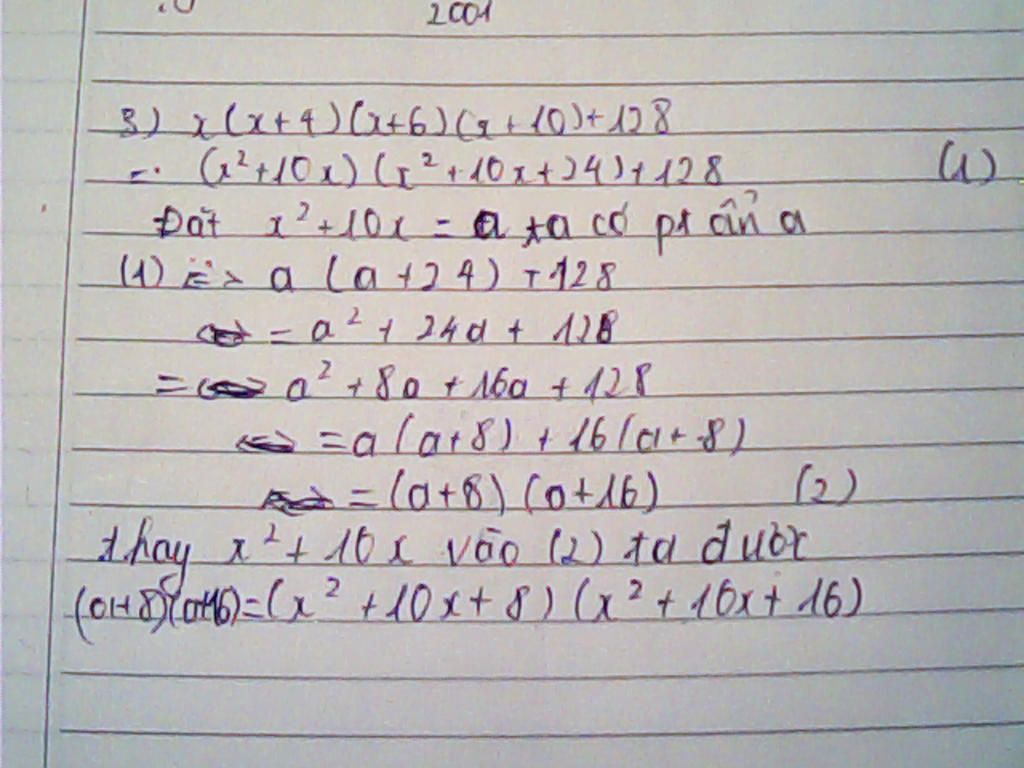 2001
3) x(x+4)(x+6)(x+10)+128
= (x²+10x)(x²+10x+24)+128 (1)
Đặt x²+10x = a ta có pt ẩn a
(1) => a(a+24)+128
= a² + 24a + 128
= a² + 8a + 16a + 128
= a(a+8) + 16(a+8)
= (a+8)(a+16) (2)
thay x² + 10x vào (2) ta được
(a+8)(a+16)=(x² +10x+8)(x² +10x+16)